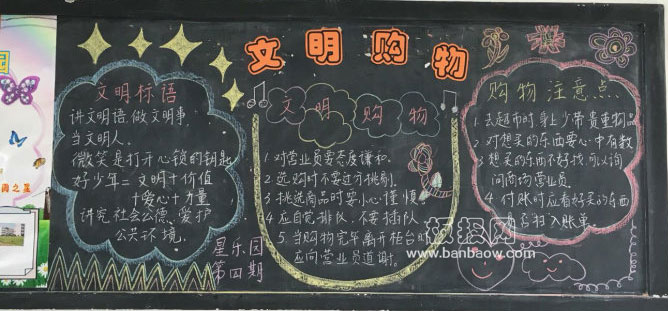 文明购物
文明标语
讲文明语.做文明事
当文明人。
微笑是打开心锁的钥匙
好少年=文明+价值
+爱心+力量
讲究社会公德、爱护
公共环境.
星乐园
第四期
文明购物
1.对营业员要态度谦和.
2.选购时不要过分挑剔.
3.挑选商品时要小心谨慎
4.应自觉排队,不要插队.
5.当购物完毕离开柜台时
应向营业员道谢.
购物注意点
1.去超市时身上少带贵重物品
2.对想买的东西要心中有数
3.想买的东西不好找可以询
问商场营业员.
4.付账时应看好买的东西
是否扫入账单
板报网
www.banbaow.com